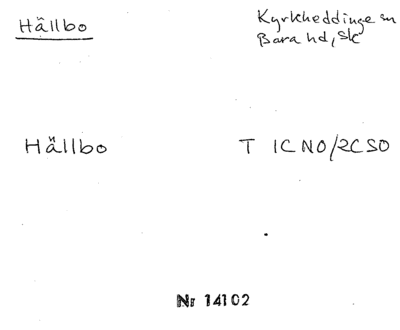 Hällbo
Kyrkheddinge sn
Bara hd, Sk
Hällbo
T 1C NO/2C SO
Nr 14102